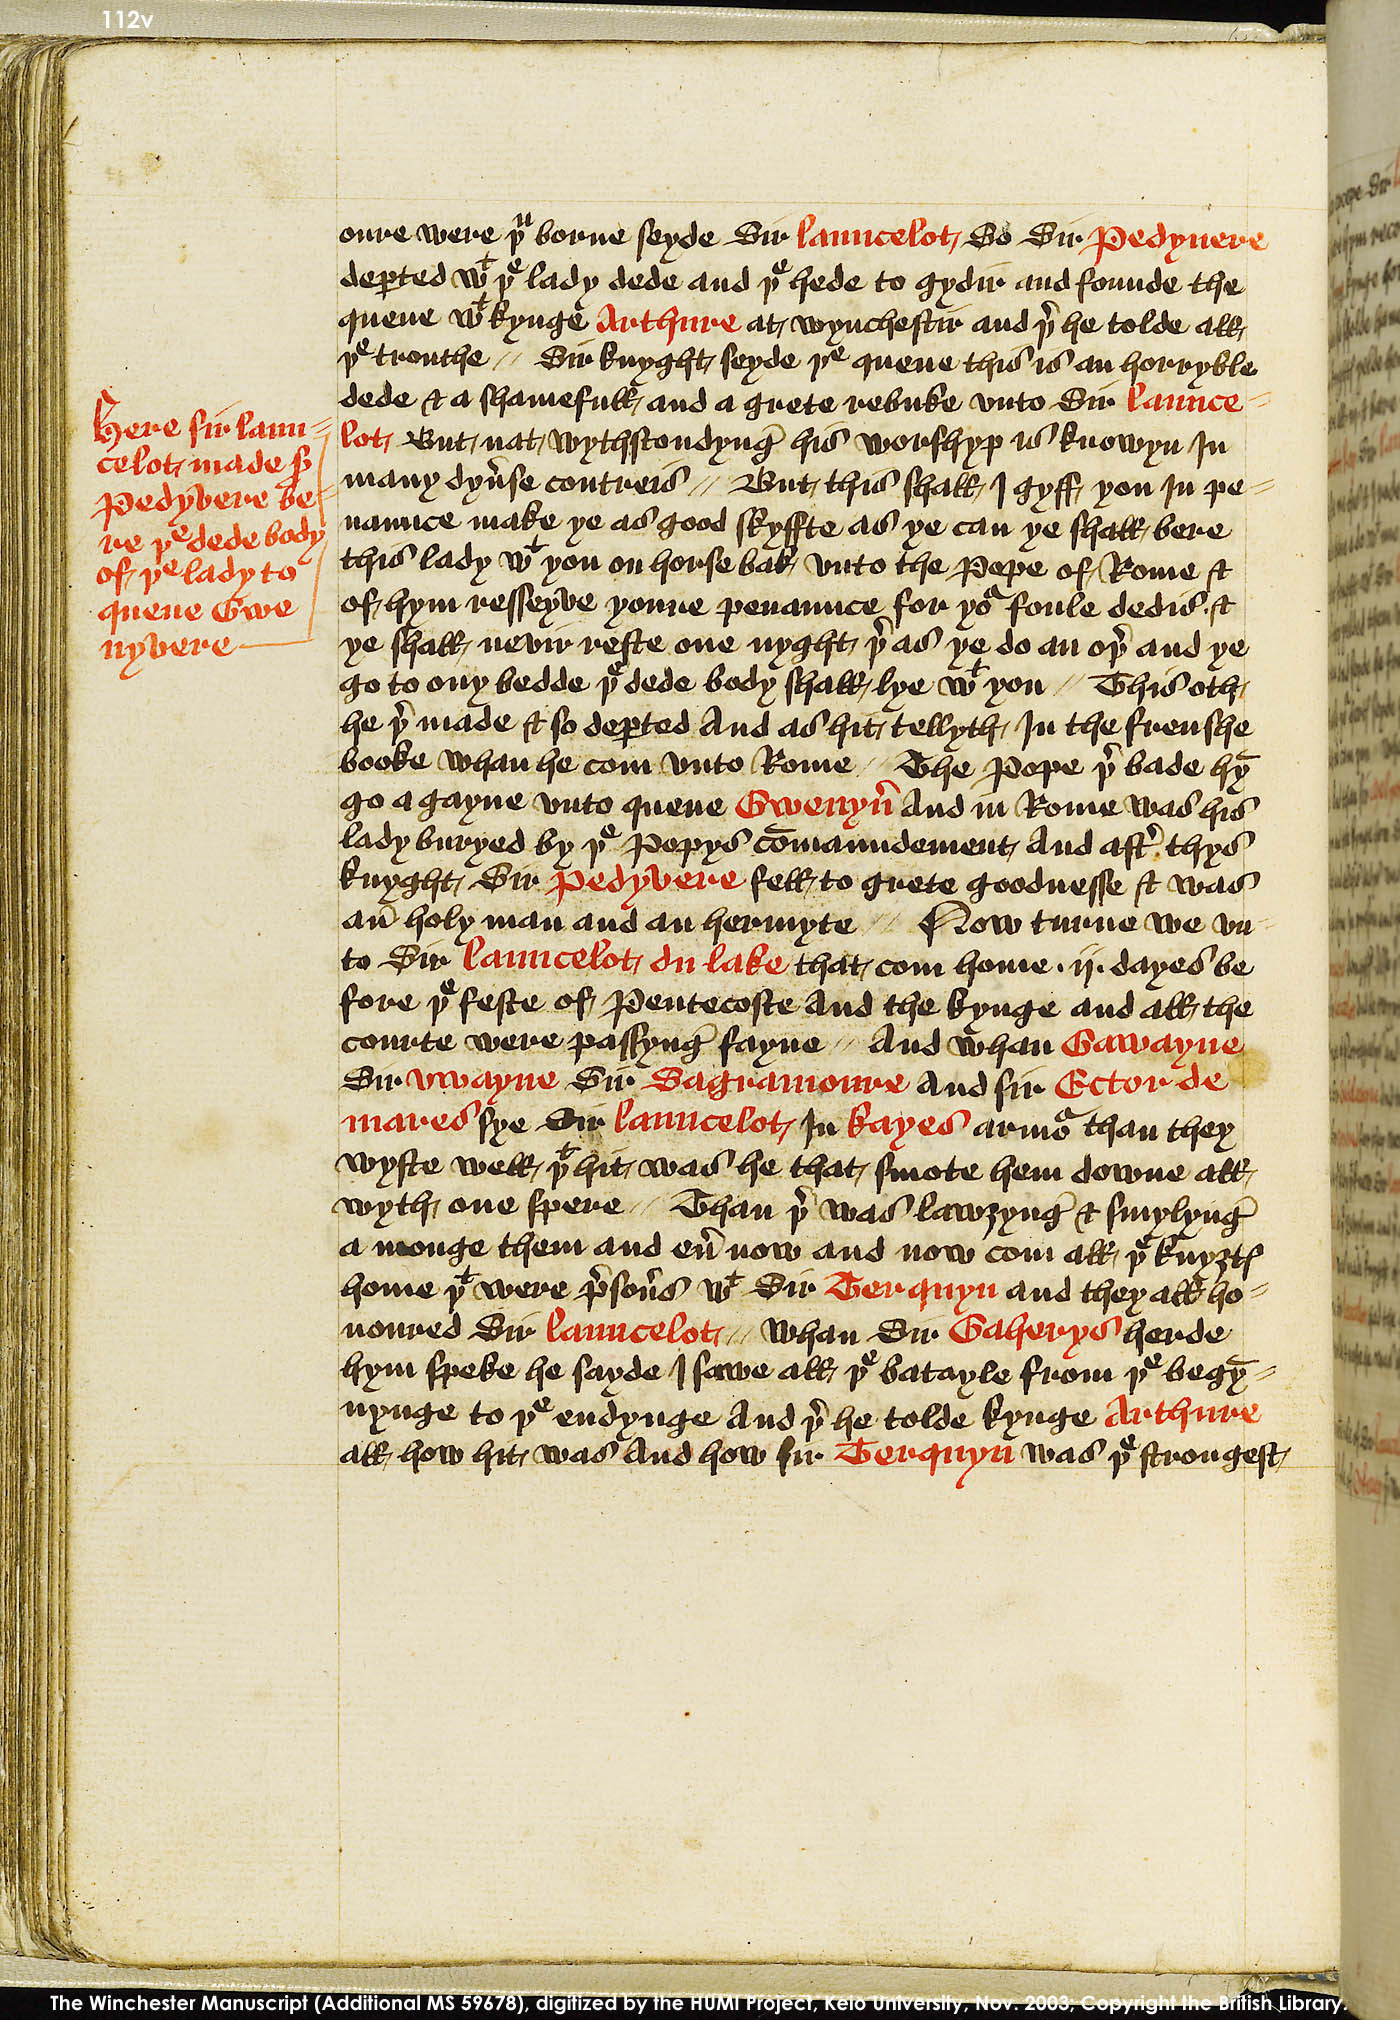 112v
oure were þu borne seyde Sir Launcelot So Sir Pedyuere
deꝑted wt þe lady dede and þe hede to gydir and founde the
quene wt kynge Arthure at wynchestir and þr he tolde all
þe trouthe // Sir knyght seyde þe quene this is an horryble
dede & a shamefull and a grete rebuke vnto Sir Launce-
lot But nat wythstondynge his worshyp is knowyn In
many dyu̾se contreis // But this shall I gyff you In pe-
naunce make ye as good skyffte as ye can ye shall bere
this lady wt you on horse bak vnto the Pope of Rome &
of hym resseyve youre penaunce for yor foule dedis &
ye shall nevir reste one nyght þr as ye do an oþr and ye
go to ony bedde þe dede body shall lye wt you // This oth
he þr made & so deꝑted And as hit tellyth In the frenshe
booke whan he com vnto Rome // The Pope þr bade hȳ
go a gayne vnto quene Gwenyu̾ And in Rome was his
lady buryed by þe Popys cōmaundement And aftr thys
knyght Sir Pedyvere fell to grete goodnesse & was
an̄ holy man and an hermyte // Now turne we vn-
to Sir Launcelot du lake that com home .ij. dayes be
fore þe feste of Pentecoste And the kynge and all the
courte were passynge fayne // And whan Gawayne
Sir vwayne Sir Sagramoure And sir Ector de
mares sye Sir Launcelot In kayes armor than they
wyste well þt hit was he that smote hem downe all
wyth one spere // Than þr was lawzynge & smylynge
a monge them and eu̾ now and now com all þe knyztes
home þt were p̾sou̾s wt Sir Terquyn and they all ho-
noured Sir Launcelot // whan Sir Gaherys herde
hym speke he sayde I sawe all þe batayle from þe begȳ-
nynge to þe endynge And þr he tolde kynge Arthure
all how hit was And how sir Terquyn was þe strongest
Here sir Laun-
celot made sr
Pedyvere be-
re þe dede body
of þe lady to
quene Gwe
nyvere
The Winchester Manuscript (Additional MS 59678), digitized by the HUMI Project, Keio University, Nov. 2003; Copyright the British Library.